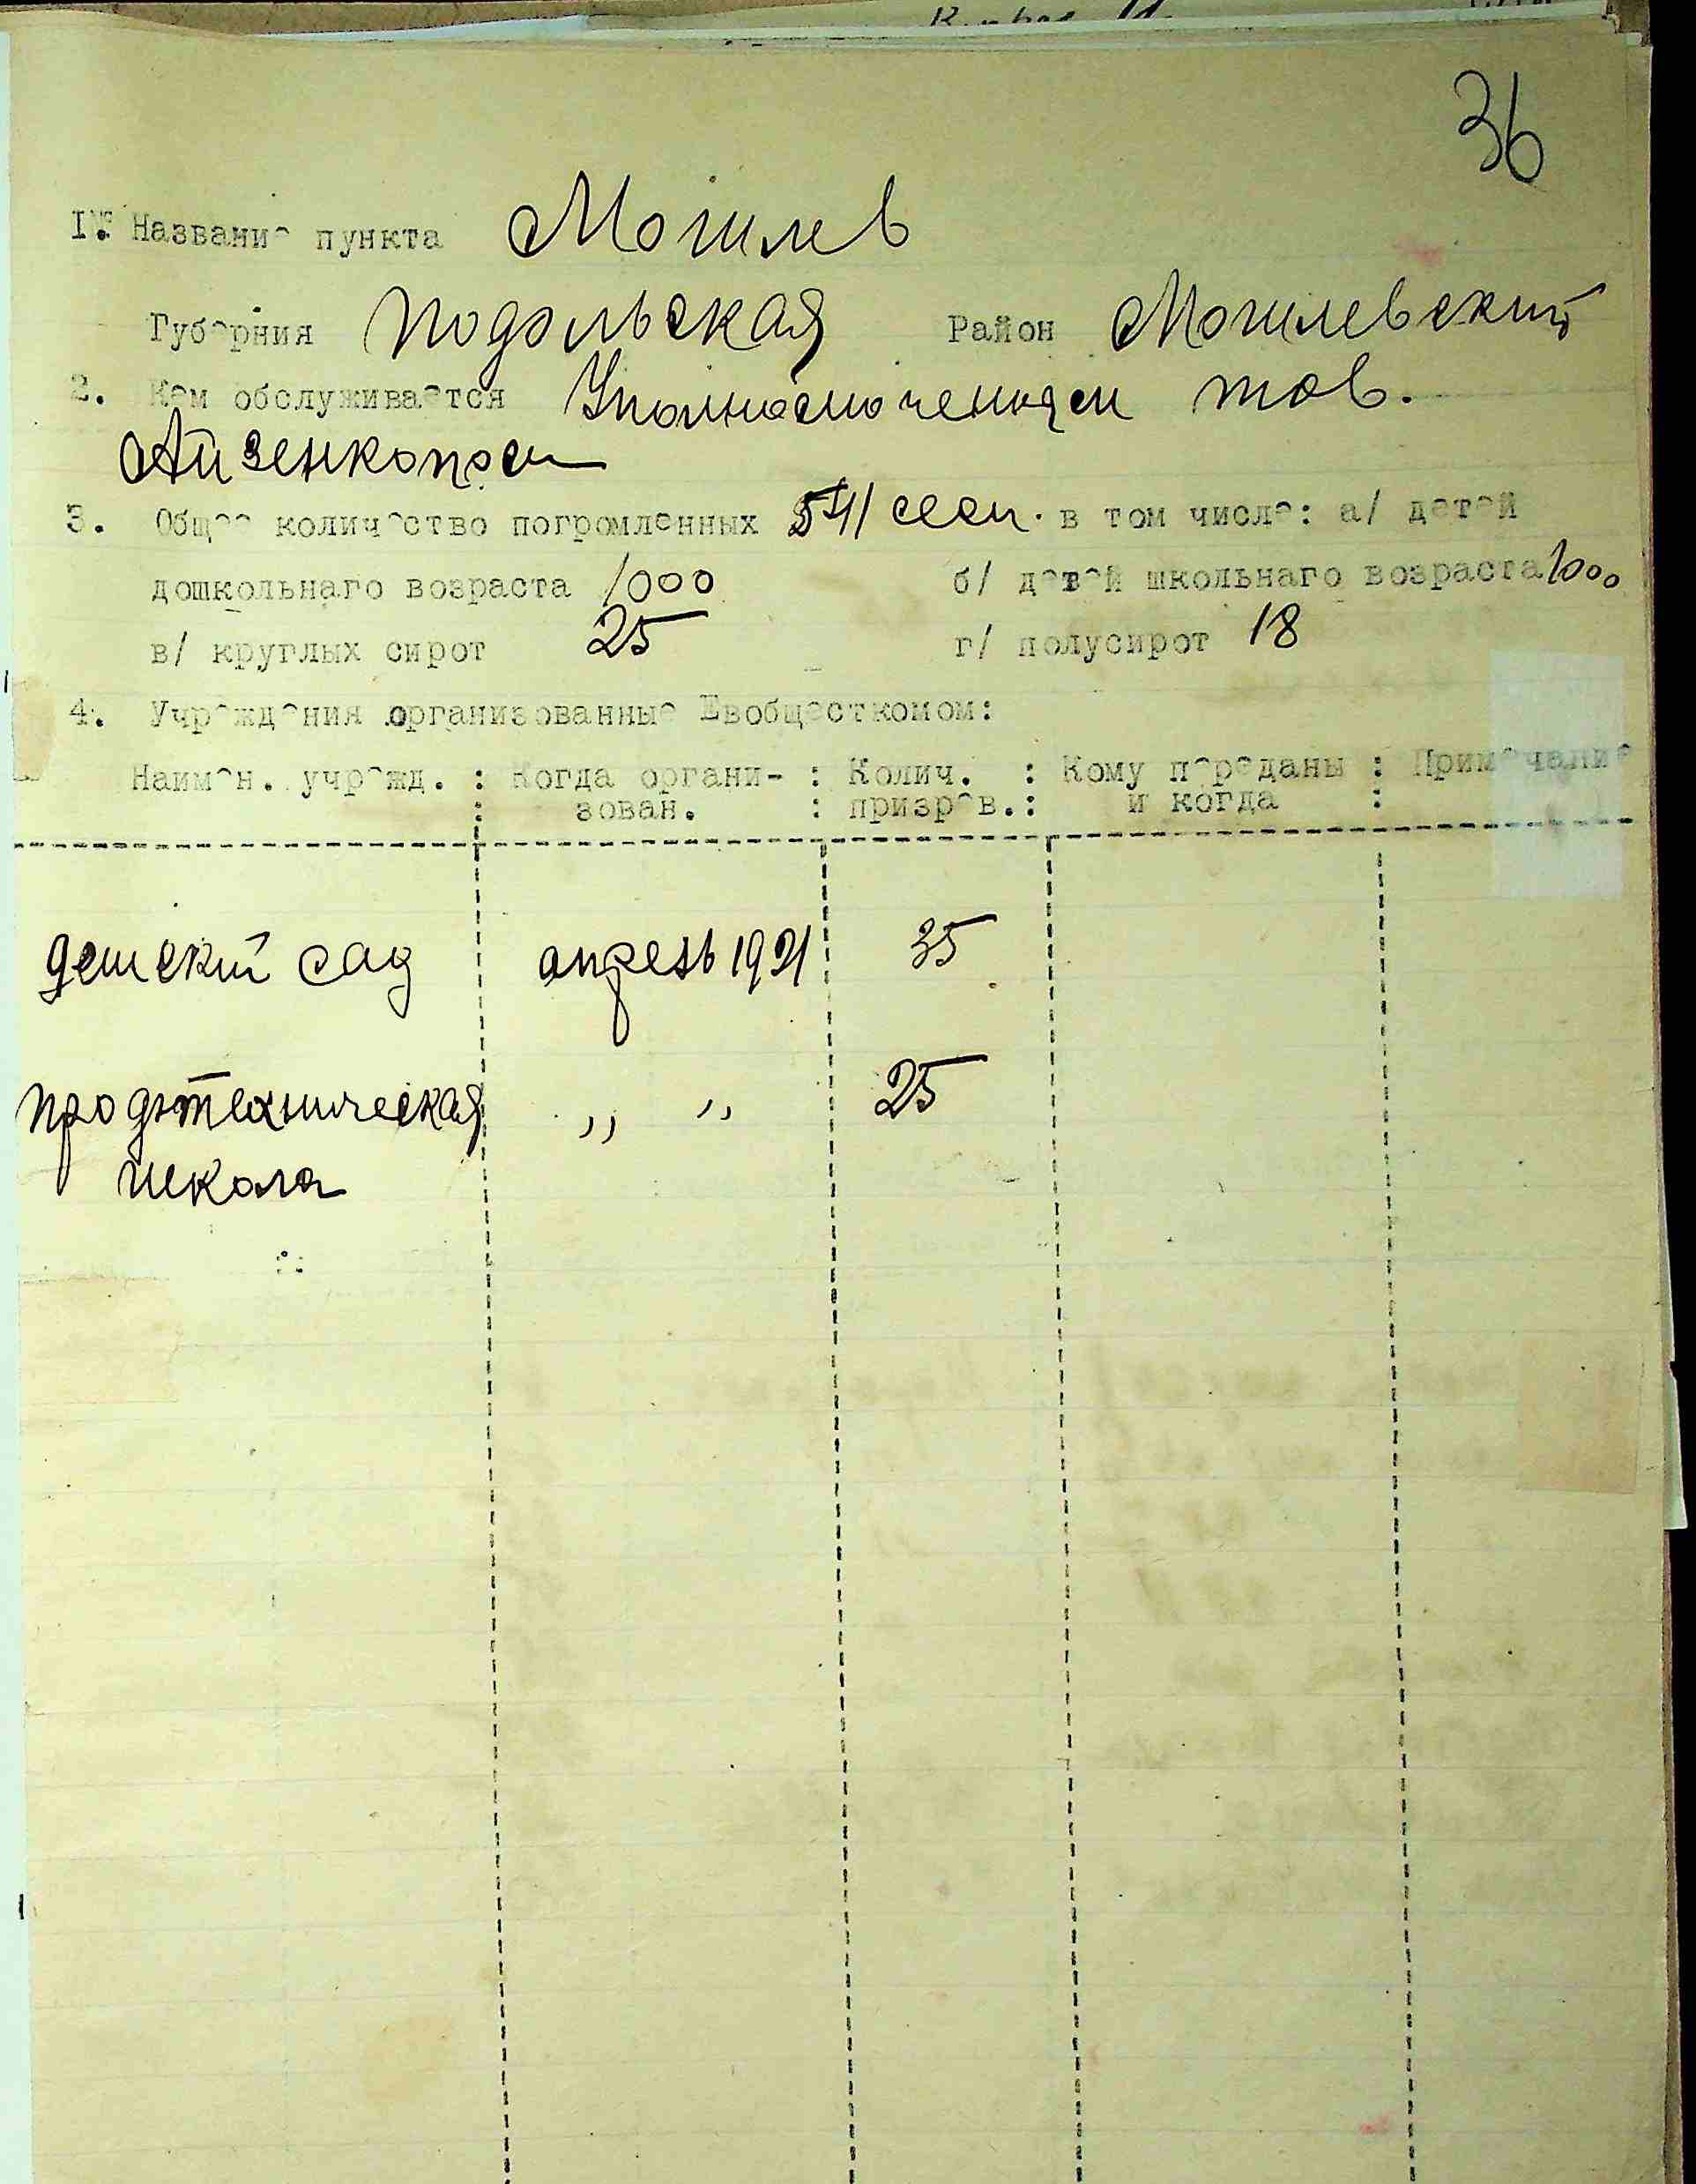 36
1. Название пункта Могилев
Губерния Подольская Район Могилевский
2. Кем обслуживается Уполномоченным тов.
Айзенкопом
3. Общее количество погромленных 541 сем. в том числе: а/ детей
дошкольнаго возраста 1000 б/ детей школьнаго возраста 1000
в/ круглых сирот 25 г/ полусирот 18
4. Учреждения организованные Евобщесткомом:
Наимен. учрежд. : Когда органи- : Колич. : Кому переданы : Примечание
: зован. : призрев. : и когда :
детский сад апрель 1921 35
профтехническая „ „ 25
школа